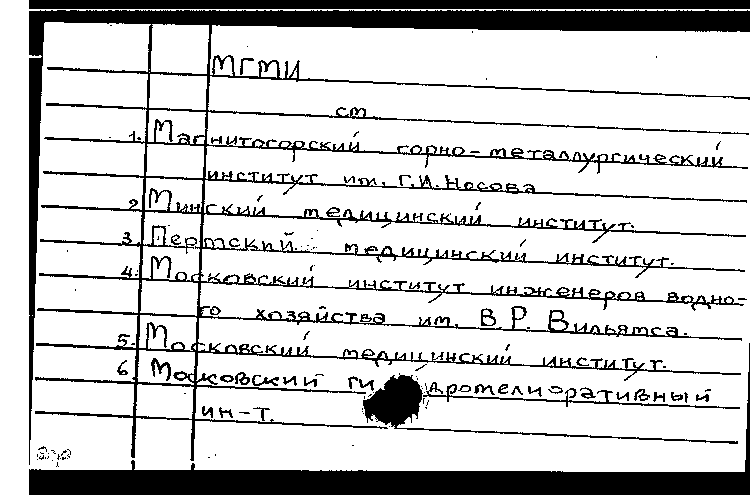 МГМИ
см.
1. Магнитогорский горно-металлургический
институт им. Г.И. Носова
2. Минский медицинский институт.
3. Пермский медицинский институт.
4. Московский институт инженеров водно-
го хозяйства им. В.Р. Вильямса.
5. Московский медицинский институт.
6. Московский гидромелиоративный
ин-т.